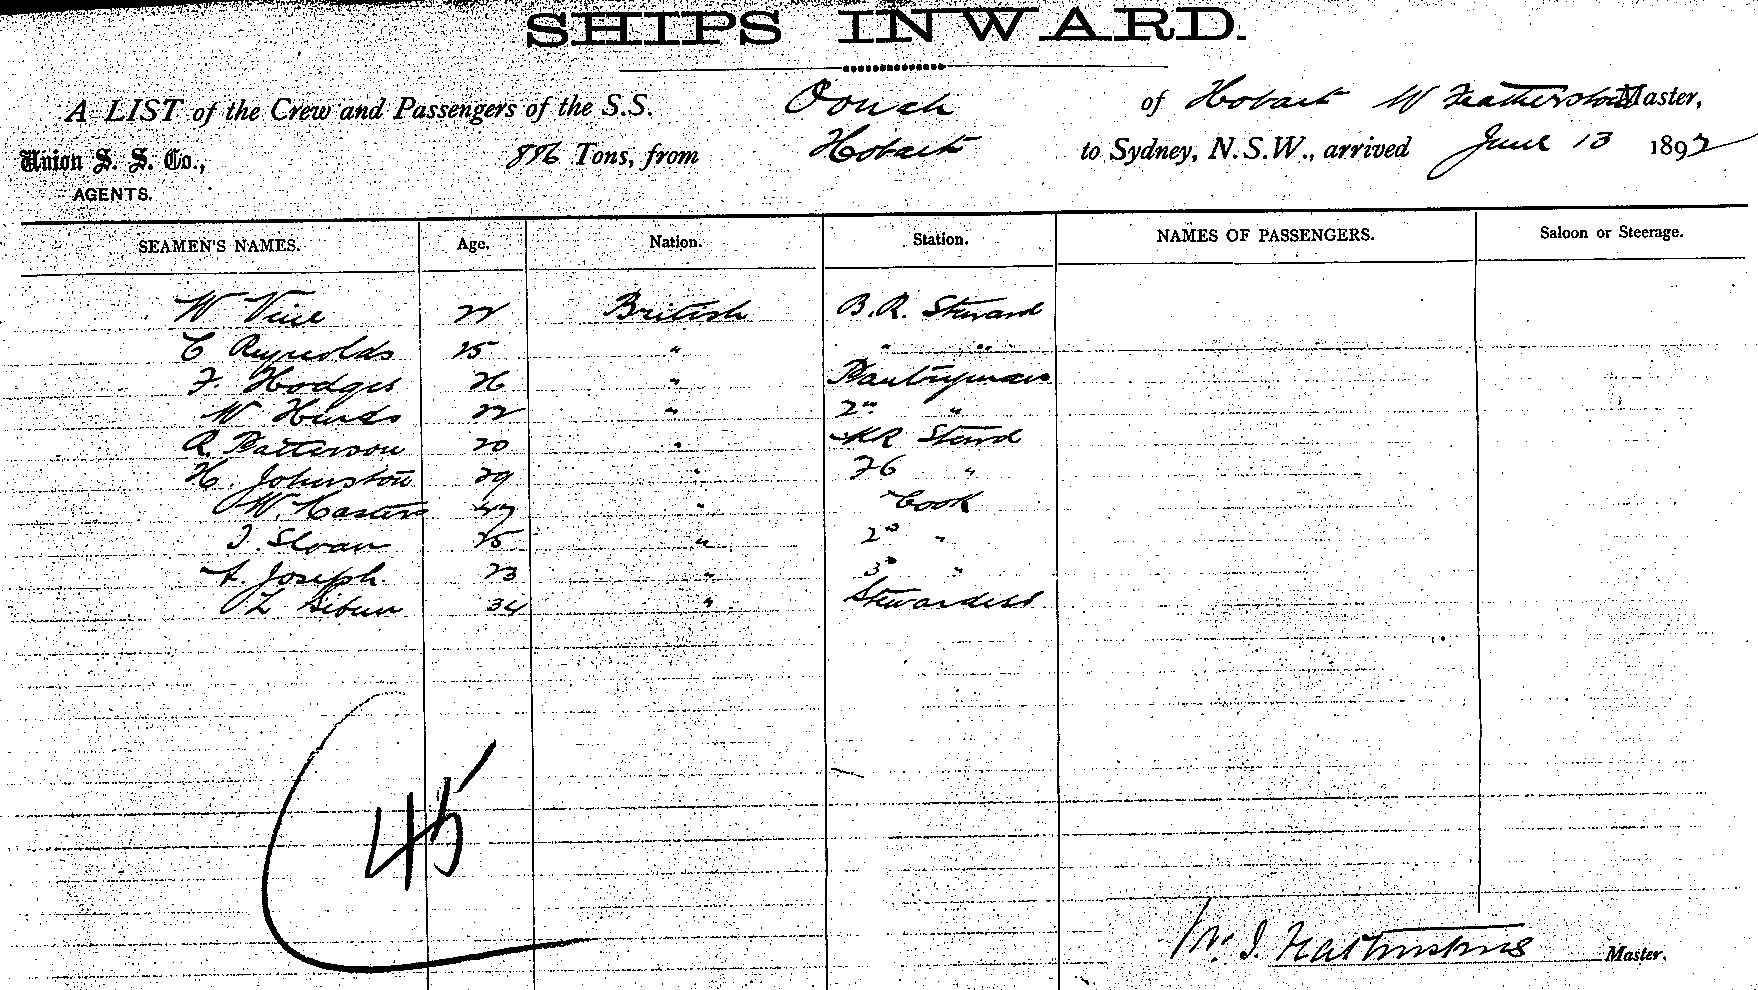 SHIPS INWARD.
A LIST of the Crew and Passengers of the S.S. Oonah of Hobart W Featherstone Master,
Union S. S. Co., 886 Tons, from Hobart to Sydney, N.S.W., arrived June 13 1892
AGENTS.
SEAMEN'S NAMES. Age. Nation. Station. NAMES OF PASSENGERS. Saloon or Steerage.
W Vine 22 British B.R. Steward
C Reynolds 25 " " "
F. Hodges 26 " Pantryman
W Hinds 22 " 2nd "
R Patterson 20 " Steward
H. Johnston 29 " "
W. Masters 47 " Cook
J. Sloan 25 " 2nd "
A. Joseph 23 " 3rd "
34 " Stewardess
45
Master.